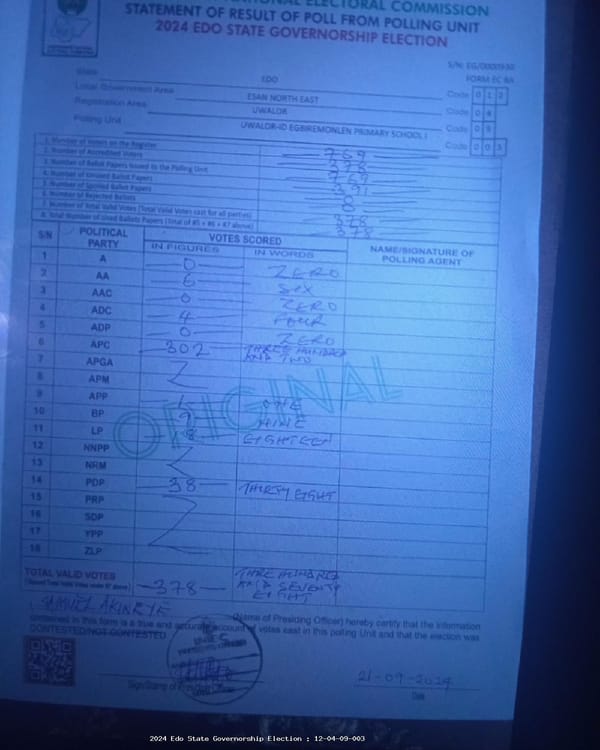 NATIONAL ELECTORAL COMMISSION
STATEMENT OF RESULT OF POLL FROM POLLING UNIT
2024 EDO STATE GOVERNORSHIP ELECTION
FORM EC 8A
State EDO Code 0 1 2
Local Government Area ESAN NORTH EAST Code 0 4
Registration Area UWALOR Code 0 9
Polling Unit UWALOR-ID EGBIREMONLEN PRIMARY SCHOOL I Code 0 0 3
1. Number of Voters on the Register 769
2. Number of Accredited Voters 378
3. Number of Ballot Papers Issued to the Polling Unit 769
4. Number of Unused Ballot Papers 391
5. Number of Spoiled Ballot Papers 0
6. Number of Rejected Ballots 0
7. Number of Total Valid Votes (Total Valid Votes cast for all parties) 378
8. Total Number of Used Ballots Papers (Total of #5 + #6 + #7 above) 378
S/N POLITICAL PARTY VOTES SCORED NAME/SIGNATURE OF POLLING AGENT
IN FIGURES IN WORDS
1 A 0 ZERO
2 AA 6 SIX
3 AAC 0 ZERO
4 ADC 4 FOUR
5 ADP 0 ZERO
6 APC 302 THREE HUNDRED AND TWO
7 APGA
8 APM
9 APP 1 ONE
10 BP 9 NINE
11 LP 18 EIGHTEEN
12 NNPP
13 NRM
14 PDP 38 THIRTY EIGHT
15 PRP
16 SDP
17 YPP
18 ZLP
ORIGINAL
TOTAL VALID VOTES 378 THREE HUNDRED AND SEVENTY EIGHT
SAMUEL AKINRYE (Name of Presiding Officer) hereby certify that the information
contained in this form is a true and accurate account of votes cast in this polling Unit and that the election was
CONTESTED/NOT CONTESTED
Sign/Stamp of Presiding Officer
21-09-2024
Date
2024 Edo State Governorship Election : 12-04-09-003